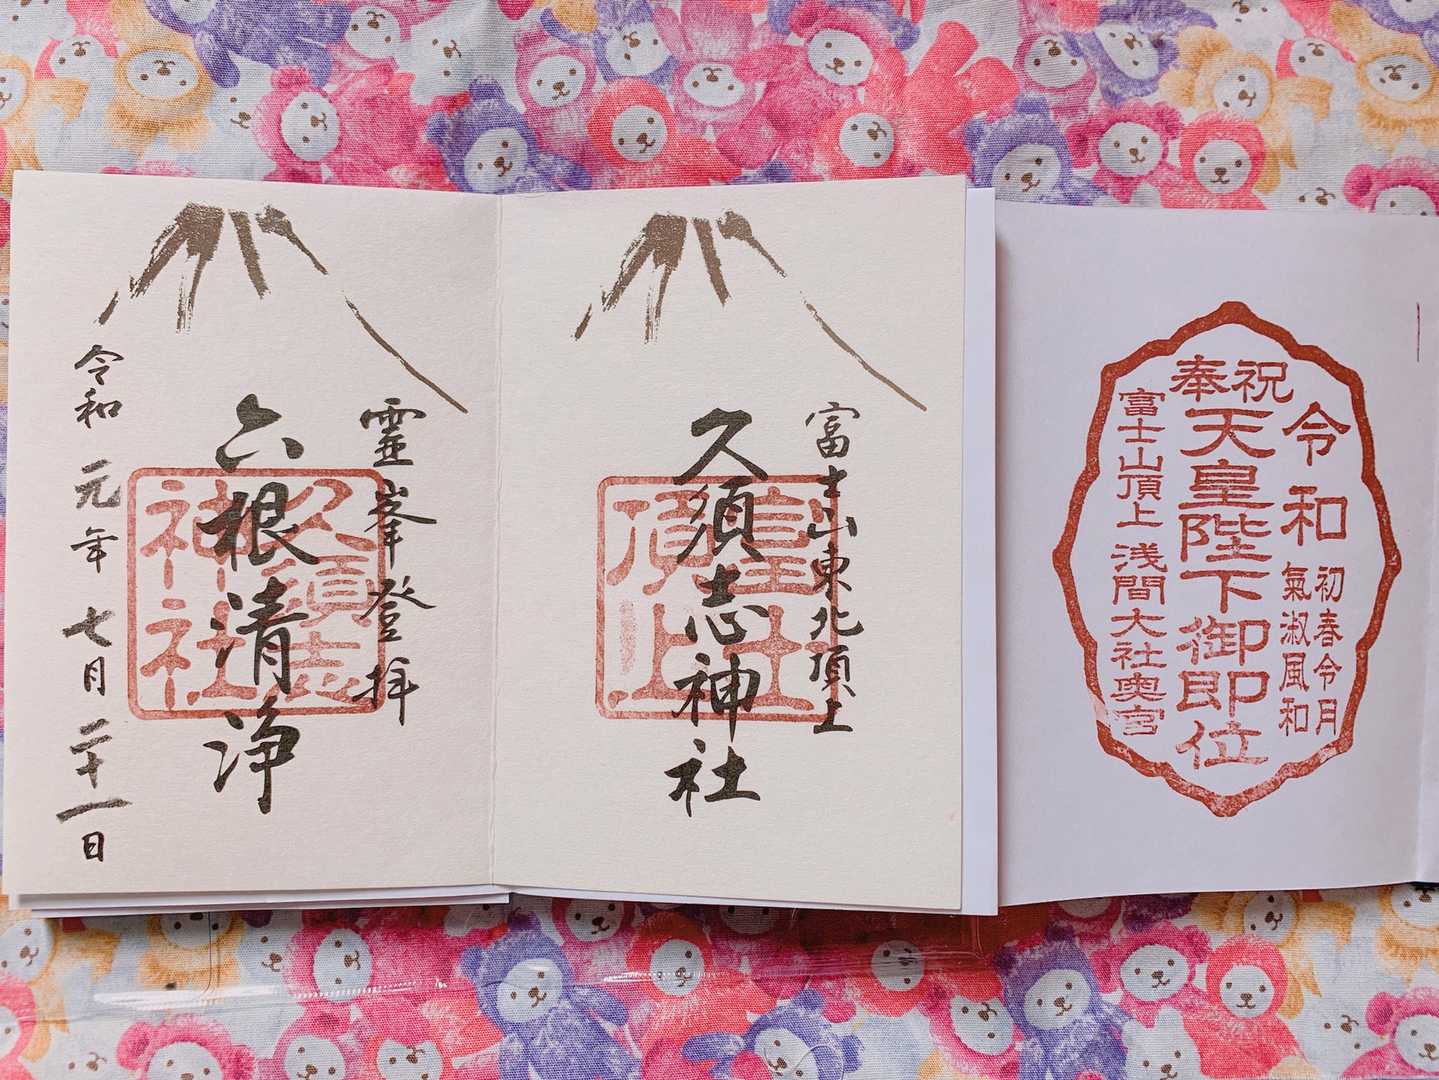 奉祝
令和
初春令月
氣淑風和
天皇陛下御即位
富士山頂上 浅間大社奥宮
富士山東北頂上
久須志神社
頂上
霊峯登拝
六根清浄
久須志
神社
令和元年七月二十一日